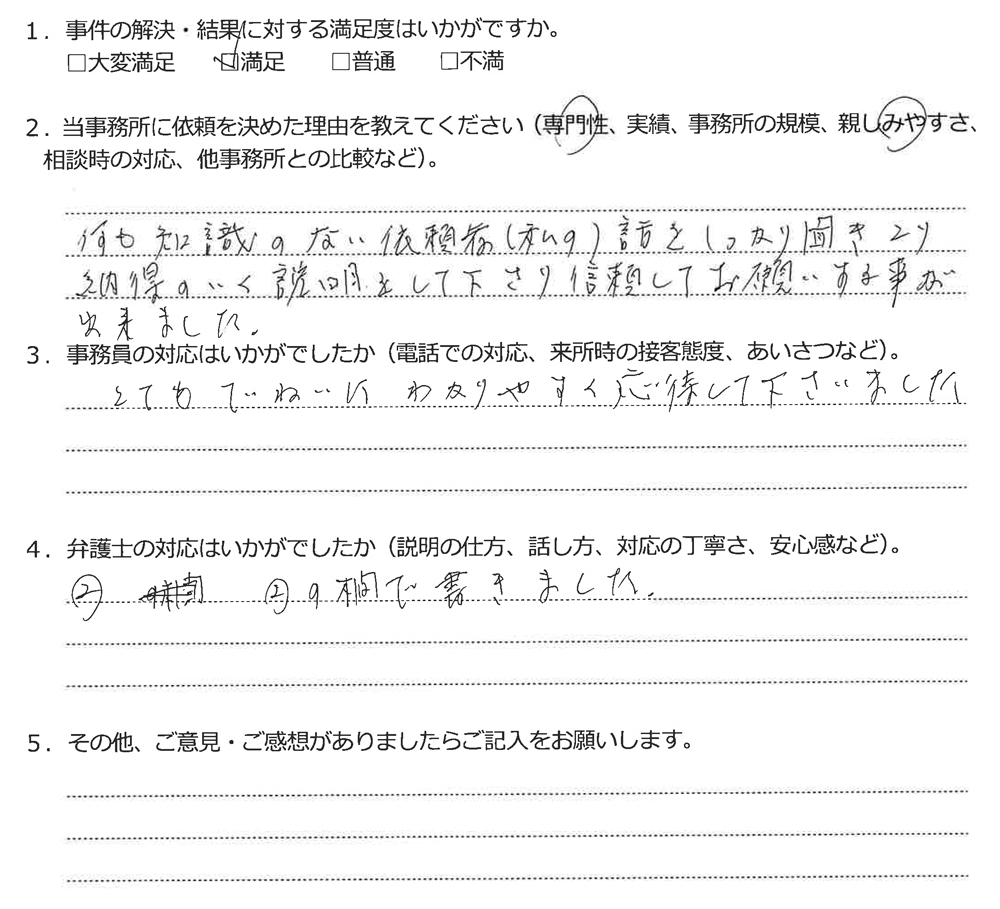 1．事件の解決・結果に対する満足度はいかがですか。
□大変満足　☑満足　□普通　□不満
2．当事務所に依頼を決めた理由を教えてください（専門性、実績、事務所の規模、親しみやすさ、
相談時の対応、他事務所との比較など）。
何も知識のない依頼者（私の）話をしっかり聞きとり
納得のいく説明をして下さり信頼してお願いする事が
出来ました。
3．事務員の対応はいかがでしたか（電話での対応、来所時の接客態度、あいさつなど）。
とてもていねいに わかりやすく応待して下さいました
4．弁護士の対応はいかがでしたか（説明の仕方、話し方、対応の丁寧さ、安心感など）。
② ②の欄で書きました。
5．その他、ご意見・ご感想がありましたらご記入をお願いします。